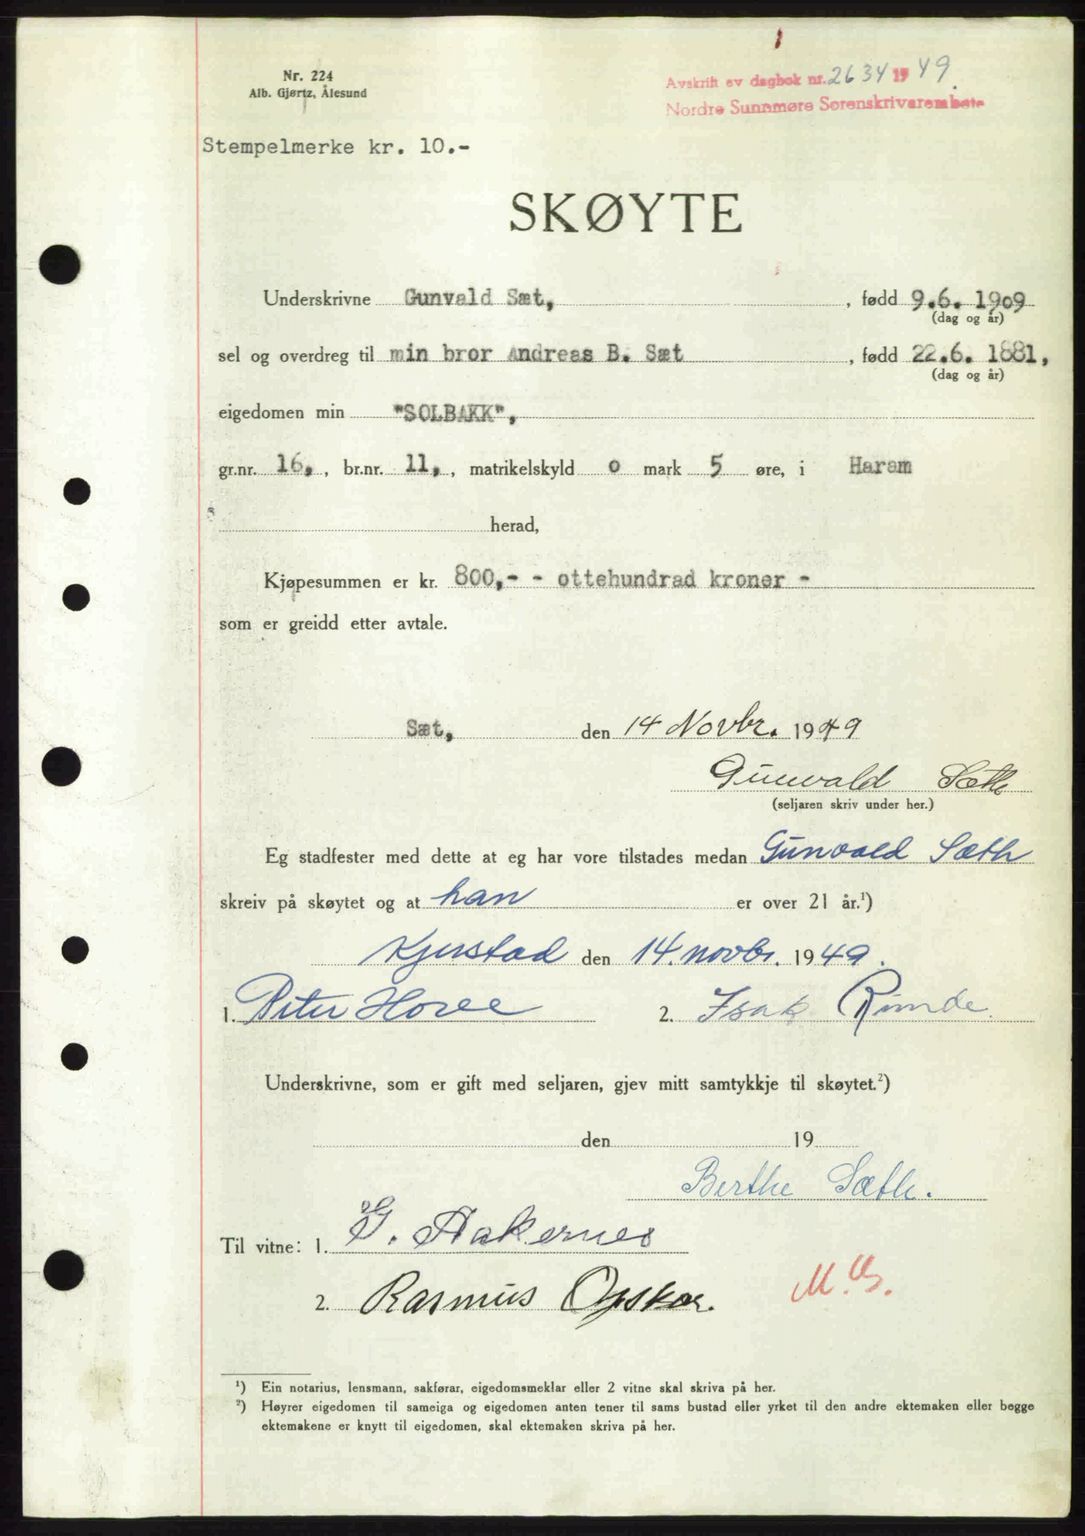 Nr. 224
Alb. Gjørtz, Ålesund
Avskrift av dagbok nr. 2634 1949.
Nordre Sunnmøre Sorenskrivarembete
Stempelmerke kr. 10.-
SKØYTE
Underskrivne Gunvald Sæt, , fødd 9.6. 1909
(dag og år)
sel og overdreg til min bror Andreas B. Sæt , fødd 22.6. 1881,
(dag og år)
eigedomen min "SOLBAKK",
gr.nr. 16, , br.nr. 11, , matrikelskyld 0 mark 5 øre, i Haram
herad,
Kjøpesummen er kr. 800,- - ottehundrad kroner -
som er greidd etter avtale.
Sæt, den 14 Novbr. 1949
Gunvald Sæth
(seljaren skriv under her.)
Eg stadfester med dette at eg har vore tilstades medan Gunvald Sæth
skreiv på skøytet og at han er over 21 år.¹)
Kjerstad den 14. novbr. 1949.
1. Peter Hovee 2. Isak Rimde.
Underskrivne, som er gift med seljaren, gjev mitt samtykkje til skøytet.²)
den 19
Berthe Sæth.
Til vitne: 1. G. Aakernes
2. Rasmus Opskar.
M.G.
¹) Ein notarius, lensmann, sakførar, eigedomsmeklar eller 2 vitne skal skriva på her.
²) Høyrer eigedomen til sameiga og eigedomen anten tener til sams bustad eller yrket til den andre ektemaken eller begge
ektemakene er knytt til eigedomen, skal ektemaken skriva på her.